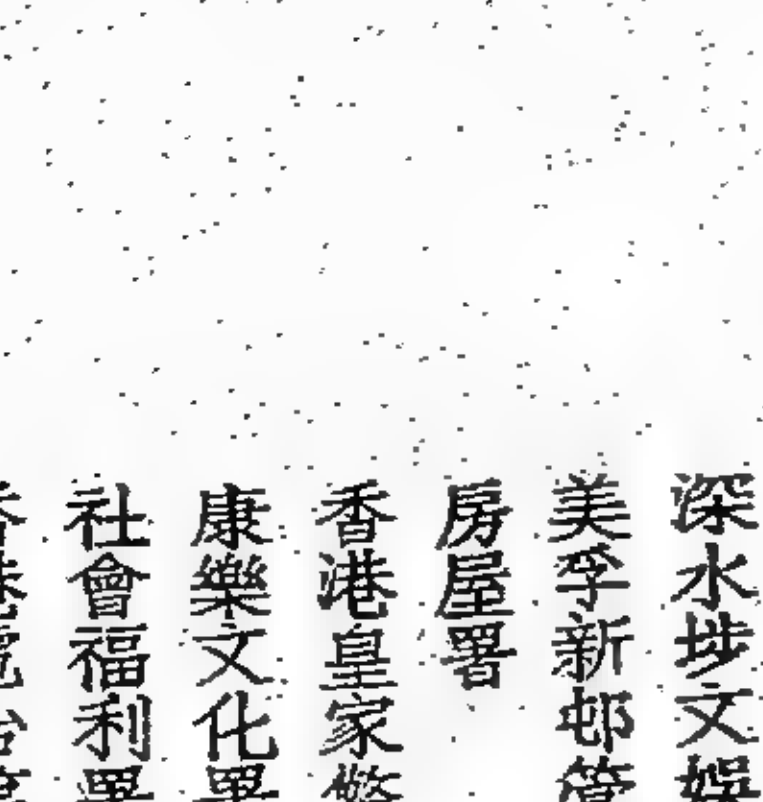 深水埗文娛
美孚新邨管
房屋署
香港皇家
康樂文化署
社會福利署